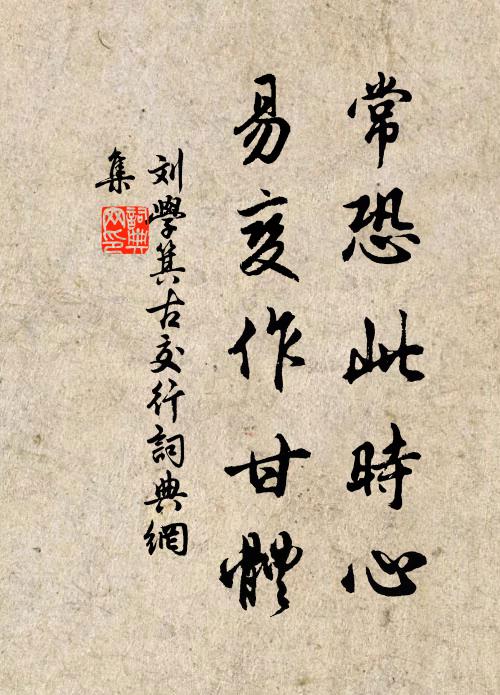 常恐此時心
易变作甘體
刘學箕古交行詞典網
集
詞典
网印